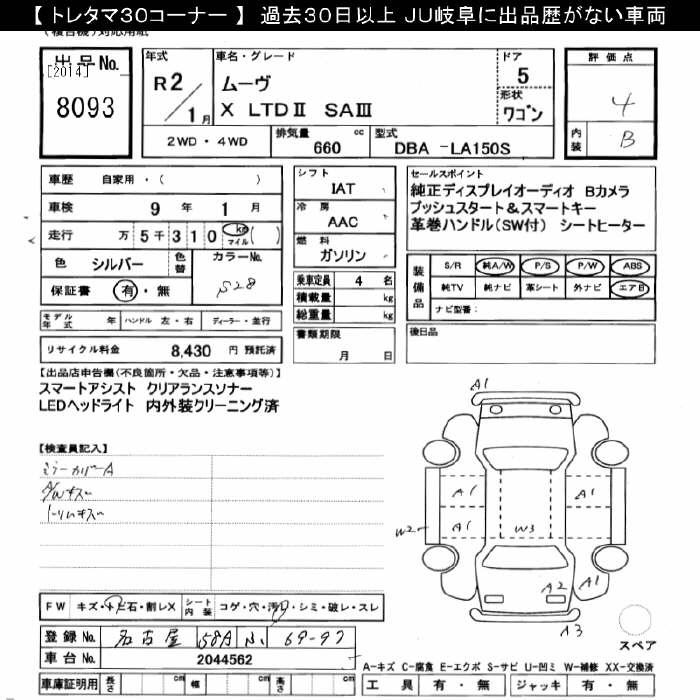 【 トレタマ30コーナー 】 過去30日以上 JU岐阜に出品歴がない車両
出品No.
[2014]
8093
年式
R2/1月
車名・グレード
ムーヴ
X LTDⅡ SAⅢ
ドア
5
形状
ワゴン
2WD ・ 4WD
排気量 660 cc
型式 DBA -LA150S
評価点
4
内装 B
車歴 自家用・( )
車検 9 年 1 月
走行 万 5 千 3 1 0 km マイル ( )
色 シルバー 色替 カラーNo. S28
保証書 有・無
モデル年式 年 ハンドル 左・右 ディーラー・並行
リサイクル料金 8,430 円 預託済
シフト
IAT
冷房
AAC
燃料
ガソリン
乗車定員 4 名
積載量 kg
総重量 kg
書類期限
月 日
セールスポイント
純正ディスプレイオーディオ Bカメラ
プッシュスタート＆スマートキー
革巻ハンドル(SW付) シートヒーター
装備品
S/R 純A/W P/S P/W ABS
純TV 純ナビ 革シート 外ナビ エアB
ナビ型番:
後日品
【出品店申告欄(不良箇所・欠品・注意事項等)】
スマートアシスト クリアランスソナー
LEDヘッドライト 内外装クリーニング済
【検査員記入】
ミラーカバーA
A/Wキズ〜
トリムキズ〜
A1
A1 A1
W2 A1 W3
A2 A1
A3
スペア
FW キズ・トビ石・割レX シート内装 コゲ・穴・汚レ・シミ・破レ・スレ
登録No. 名古屋 58A 69-97
車台No. 2044562
車庫証明用 長さ cm 幅 cm 高さ cm
A-キズ C-腐食 E-エクボ S-サビ U-凹ミ W-補修 XX-交換済
工具 有・無 ジャッキ 有・無